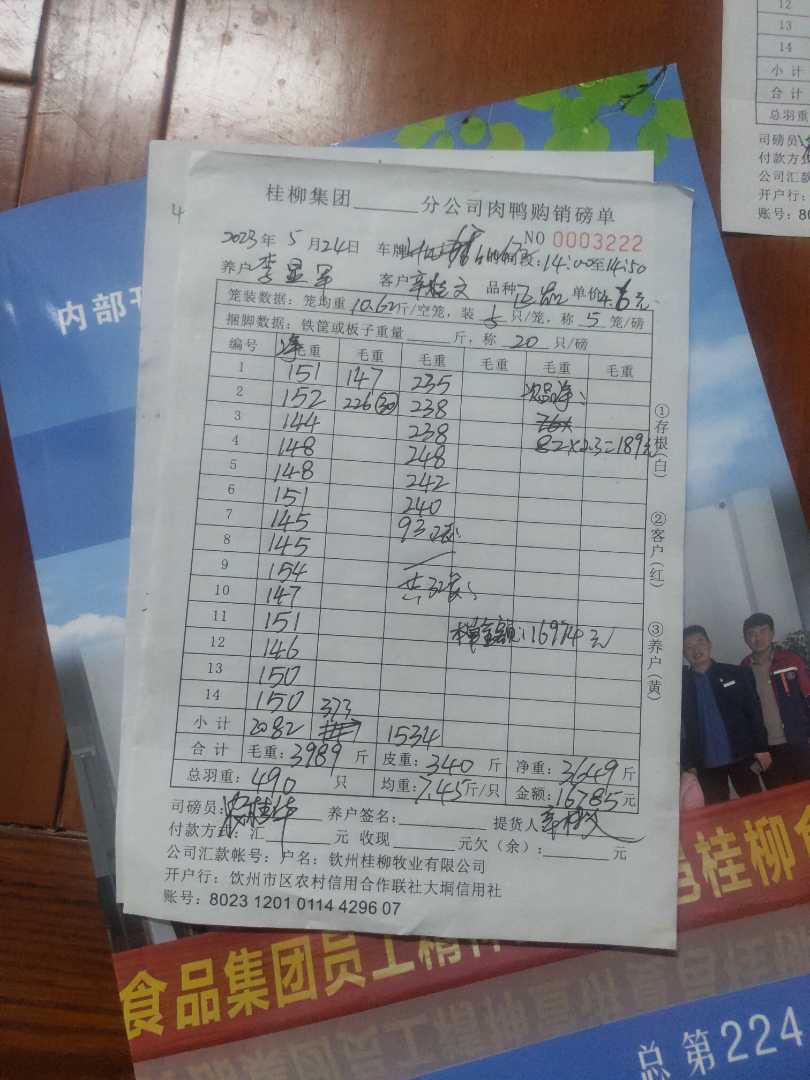 4
桂柳集团 分公司肉鸭购销磅单
NO 0003222
2023年 5月24日 车牌 段:14:00至14:50
养户 李 客户 文 品种 单价4.6元
笼装数据:笼均重 10.62斤/空笼,装 5 只/笼,称 5 笼/磅
捆脚数据:铁筐或板子重量 斤,称 20 只/磅
编号 净毛重 毛重 毛重 毛重 毛重 毛重
1 151 147 235
2 152 226(30) 238 次品净:
3 144 238 76x
4 148 248 82×2.3=189元
5 148 242
6 151 240
7 145 93
8 145
9 154
10 147
11 151
12 146 金额:16974元
13 150
14 150 373
小计 2082 1534
合计 毛重:3989斤 皮重:340斤 净重:3649斤
总羽重:490 只 均重:7.45斤/只 金额:16785元
司磅员: 养户签名: 提货人
付款方式:汇 元 收现 元欠(余): 元
公司汇款帐号:户名:钦州桂柳牧业有限公司
开户行:饮州市区农村信用合作联社大垌信用社
账号:8023 1201 0114 4296 07
①存根(白)
②客户(红)
③养户(黄)
内部
12
13
14
小计
合计
总羽重
司磅员
付款方
公司汇款
开户行:
账号:80
桂柳食
食品集团员工精神
总第224